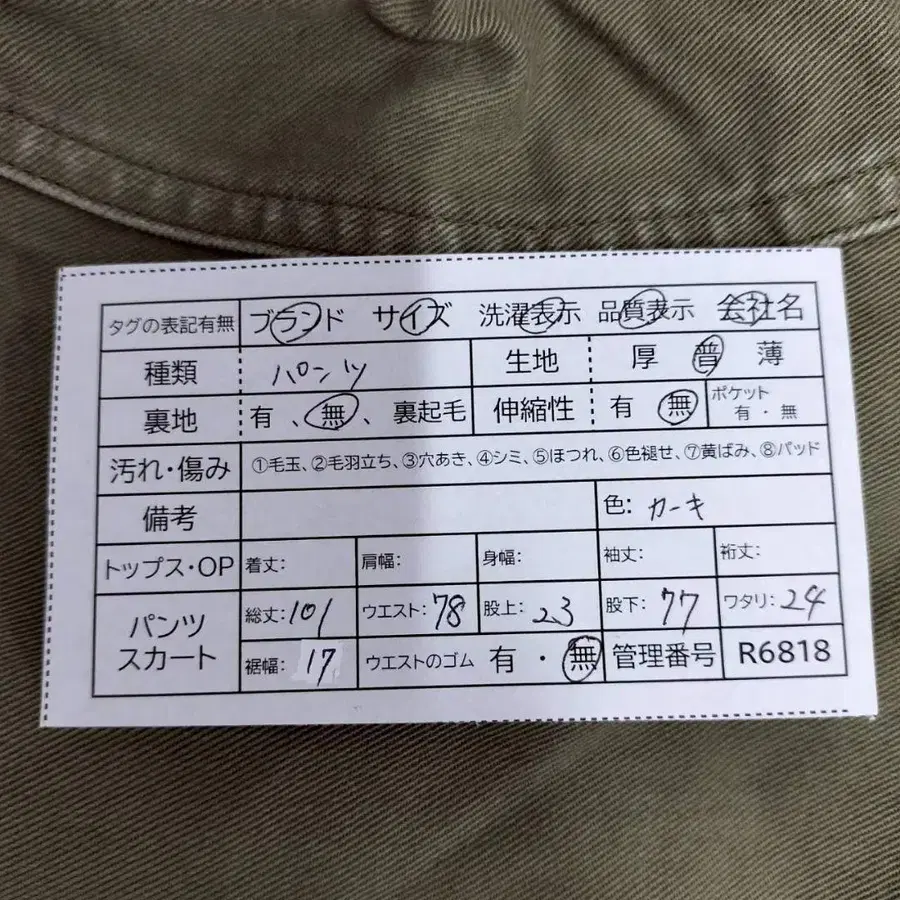 タグの表記有無 ブランド サイズ 洗濯表示 品質表示 会社名
種類 パンツ 生地 厚 普 薄
裏地 有、無、裏起毛 伸縮性 有 無 ポケット 有・無
汚れ・傷み ①毛玉、②毛羽立ち、③穴あき、④シミ、⑤ほつれ、⑥色褪せ、⑦黄ばみ、⑧パッド
備考 色: カーキ
トップス・OP 着丈: 肩幅: 身幅: 袖丈: 裄丈:
パンツ スカート 総丈:101 ウエスト:78 股上:23 股下:77 ワタリ:24
裾幅:17 ウエストのゴム 有・無 管理番号 R6818